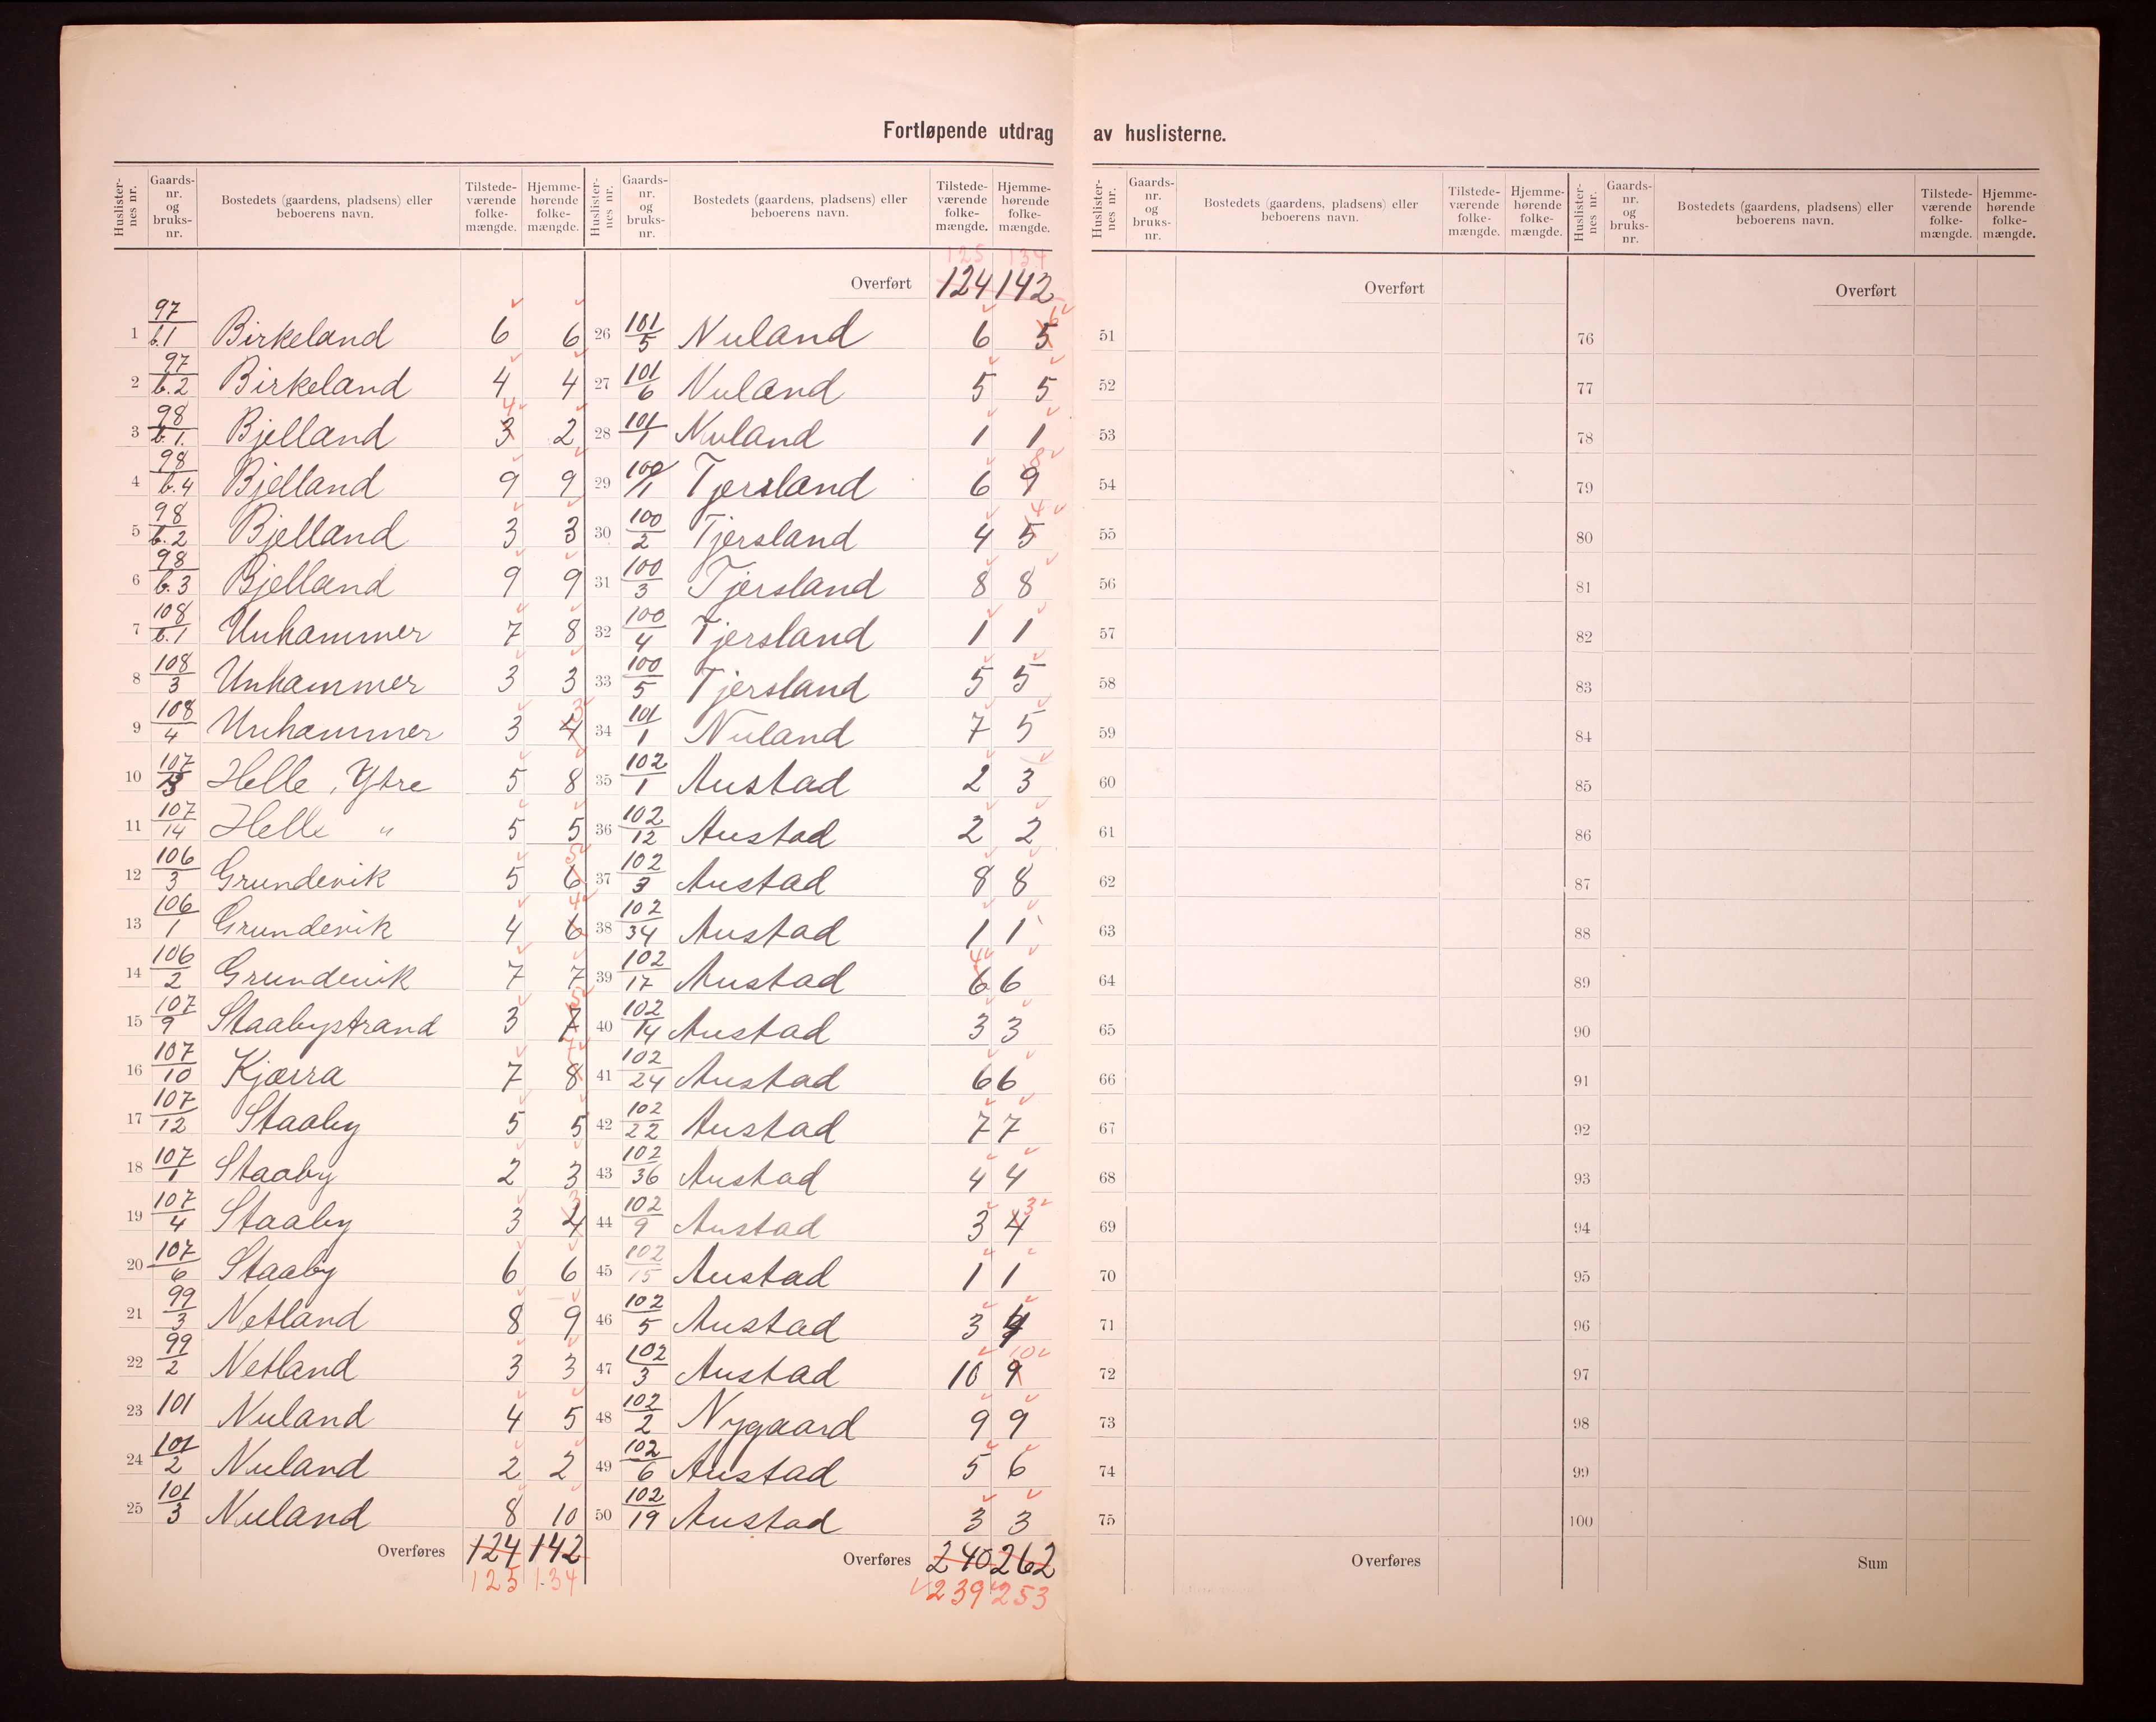 Fortløpende utdrag av huslisterne.
Huslister-nes nr. | Gaards-nr. og bruks-nr. | Bostedets (gaardens, pladsens) eller beboerens navn. | Tilstede-værende folke-mængde. | Hjemme-hørende folke-mængde.
1 97/b.1 Birkeland 6 6
2 97/b.2 Birkeland 4 4
3 98/b.1. Bjelland 3 4 2
4 98/b.4 Bjelland 9 9
5 98/b.2 Bjelland 3 3
6 98/b.3 Bjelland 9 9
7 108/b.1 Unhammer 7 8
8 108/3 Unhammer 3 3
9 108/4 Unhammer 3 4 3
10 107/13 Helle, Ytre 5 8
11 107/14 Helle " 5 5
12 106/3 Grundevik 5 6 5
13 106/1 Grundevik 4 6 4
14 106/2 Grundevik 7 7
15 107/9 Staabystrand 3 7
16 107/10 Kjærra 7 8 7
17 107/12 Staaby 5 5
18 107/1 Staaby 2 3
19 107/4 Staaby 3 4 3
20 107/6 Staaby 6 6
21 99/3 Netland 8 9
22 99/2 Netland 3 3
23 101 Nuland 4 5
24 101/2 Nuland 2 2
25 101/3 Nuland 8 10
Overføres 124 142
125 134
Huslister-nes nr. | Gaards-nr. og bruks-nr. | Bostedets (gaardens, pladsens) eller beboerens navn. | Tilstede-værende folke-mængde. | Hjemme-hørende folke-mængde.
125 134
Overført 124 142
26 101/5 Nuland 6 5 6
27 101/6 Nuland 5 5
28 101/1 Nuland 1 1
29 100/1 Tjersland 6 9 8
30 100/2 Tjersland 4 5 4
31 100/3 Tjersland 8 8
32 100/4 Tjersland 1 1
33 100/5 Tjersland 5 5
34 101/1 Nuland 7 5
35 102/1 Austad 2 3
36 102/12 Austad 2 2
37 102/3 Austad 8 8
38 102/34 Austad 1 1
39 102/17 Austad 6 4 6
40 102/14 Austad 3 3
41 102/24 Austad 6 6
42 102/22 Austad 7 7
43 102/36 Austad 4 4
44 102/9 Austad 3 4 3
45 102/15 Austad 1 1
46 102/5 Austad 3 4
47 102/3 Austad 10 9 10
48 102/2 Nygaard 9 9
49 102/6 Austad 5 6
50 102/19 Austad 3 3
Overføres 240 262
239 253
Huslister-nes nr. | Gaards-nr. og bruks-nr. | Bostedets (gaardens, pladsens) eller beboerens navn. | Tilstede-værende folke-mængde. | Hjemme-hørende folke-mængde.
Overført
51
52
53
54
55
56
57
58
59
60
61
62
63
64
65
66
67
68
69
70
71
72
73
74
75
Overføres
Huslister-nes nr. | Gaards-nr. og bruks-nr. | Bostedets (gaardens, pladsens) eller beboerens navn. | Tilstede-værende folke-mængde. | Hjemme-hørende folke-mængde.
Overført
76
77
78
79
80
81
82
83
84
85
86
87
88
89
90
91
92
93
94
95
96
97
98
99
100
Sum